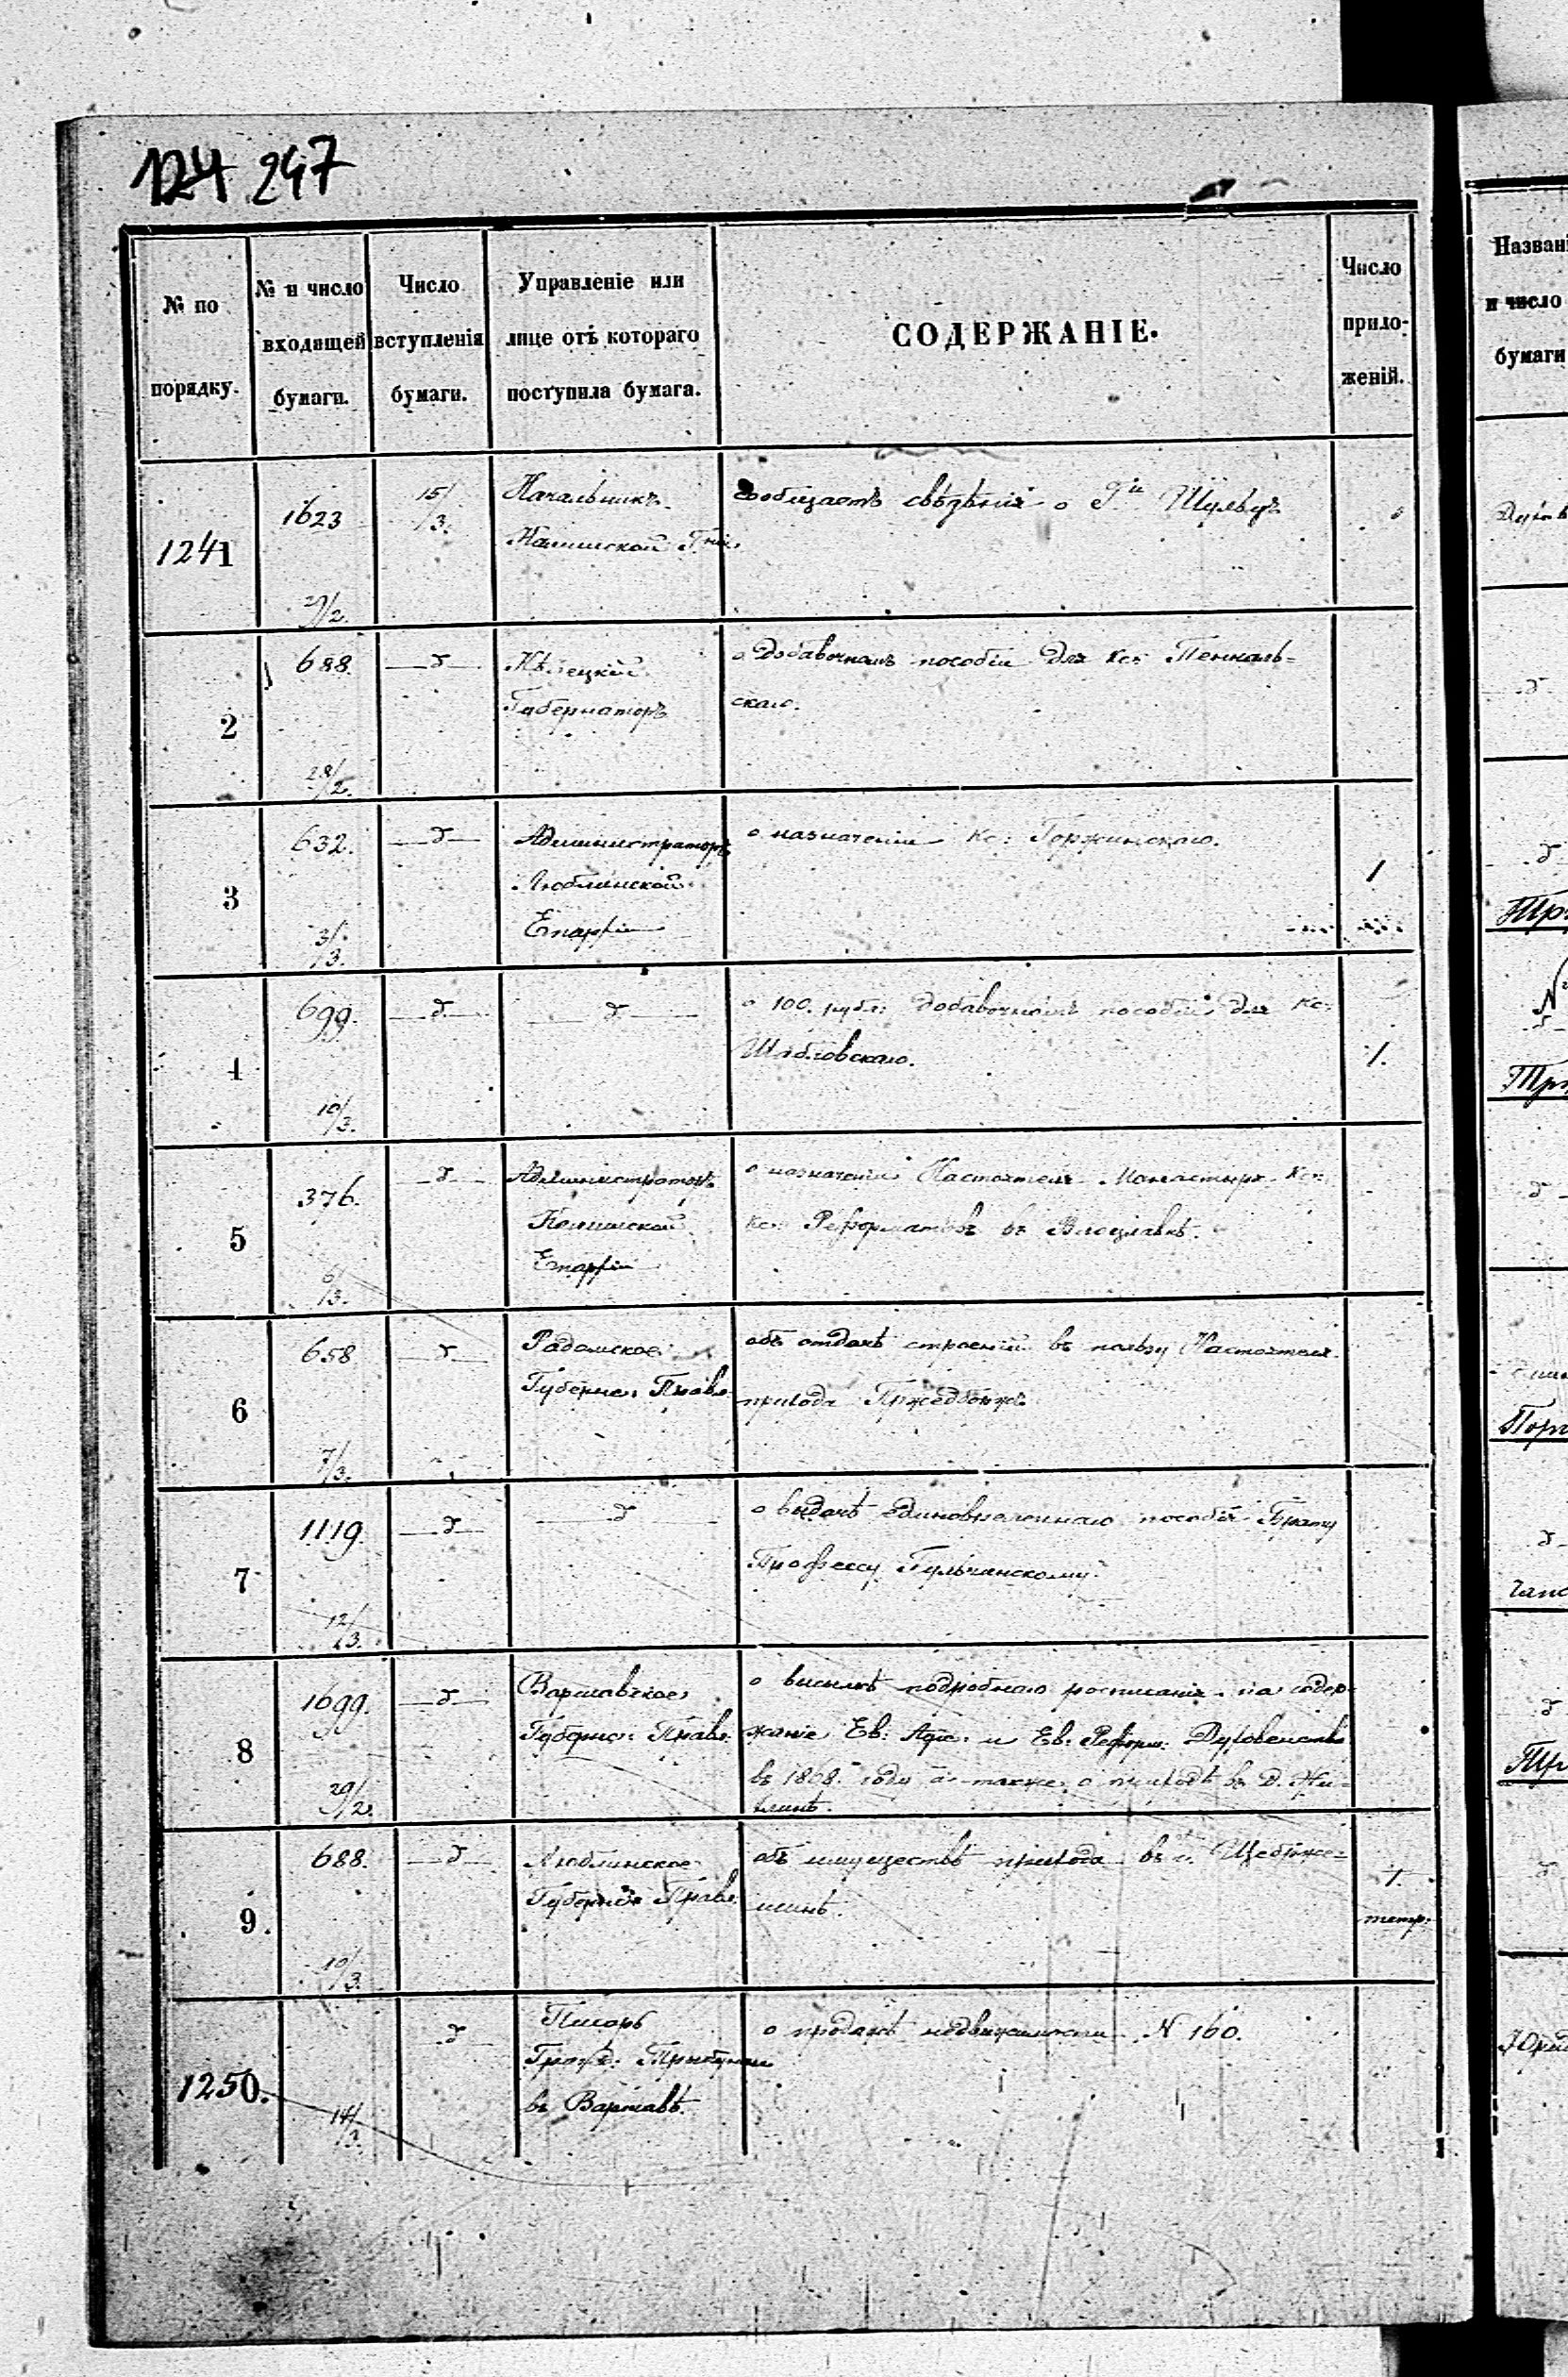 124 247
№ по порядку.
№ и число входящей бумаги.
Число вступленія бумаги.
Управленіе или лице отъ котораго поступила бумага.
СОДЕРЖАНІЕ.
Число приложеній.
1241
1623
27/2.
15/3.
Начальникъ
Калишской Гніи.
сообщаетъ свѣдѣнія о
2
688.
28/2.
д
Кѣлецкій
Губернаторъ
о добавочномъ пособіи для Кс:
скаго.
3
632.
3/3.
д
Администраторъ
Люблинской
Епархіи
о назначеніи Кс: Горжинскаго.
1
4
699.
10/3.
д
д
о 100. рубл: добавочномъ пособіи для Кс:
Шабловскаго.
1.
5
376.
6/3.
д
Администраторъ
Калишской
Епархіи
о назначеніи Настоятеля Монастыря Кс:
Кс: Реформатовъ въ Влоцлавкѣ.
6
658
7/3.
д
Радомское
Губернс: Правл:
объ отдачѣ строеній въ пользу Настоятеля
прихода
7
1119.
12/3.
д
д
о выдачѣ единовременнаго пособія Брату
Профессу
8
1699.
29/2.
д
Варшавское
Губернс: Правл:
о высылкѣ подробнаго росписанія на содер-
жаніе Ев: Ауг: и Ев: Реформ: Духовенства
въ 1868. году а также о приходѣ въ Д.
9.
688.
10/3.
д
Люблинское
Губернс: Правл:
объ имуществѣ прихода въ г. Щебрже-
шинѣ.
1.
тетр:
1250.
14/3.
д
Писарь
Гражд: Трибунала
въ Варшавѣ.
о продажѣ недвижимости N 160.
Названі
и число
бумаги
д
д
д
д
д
д